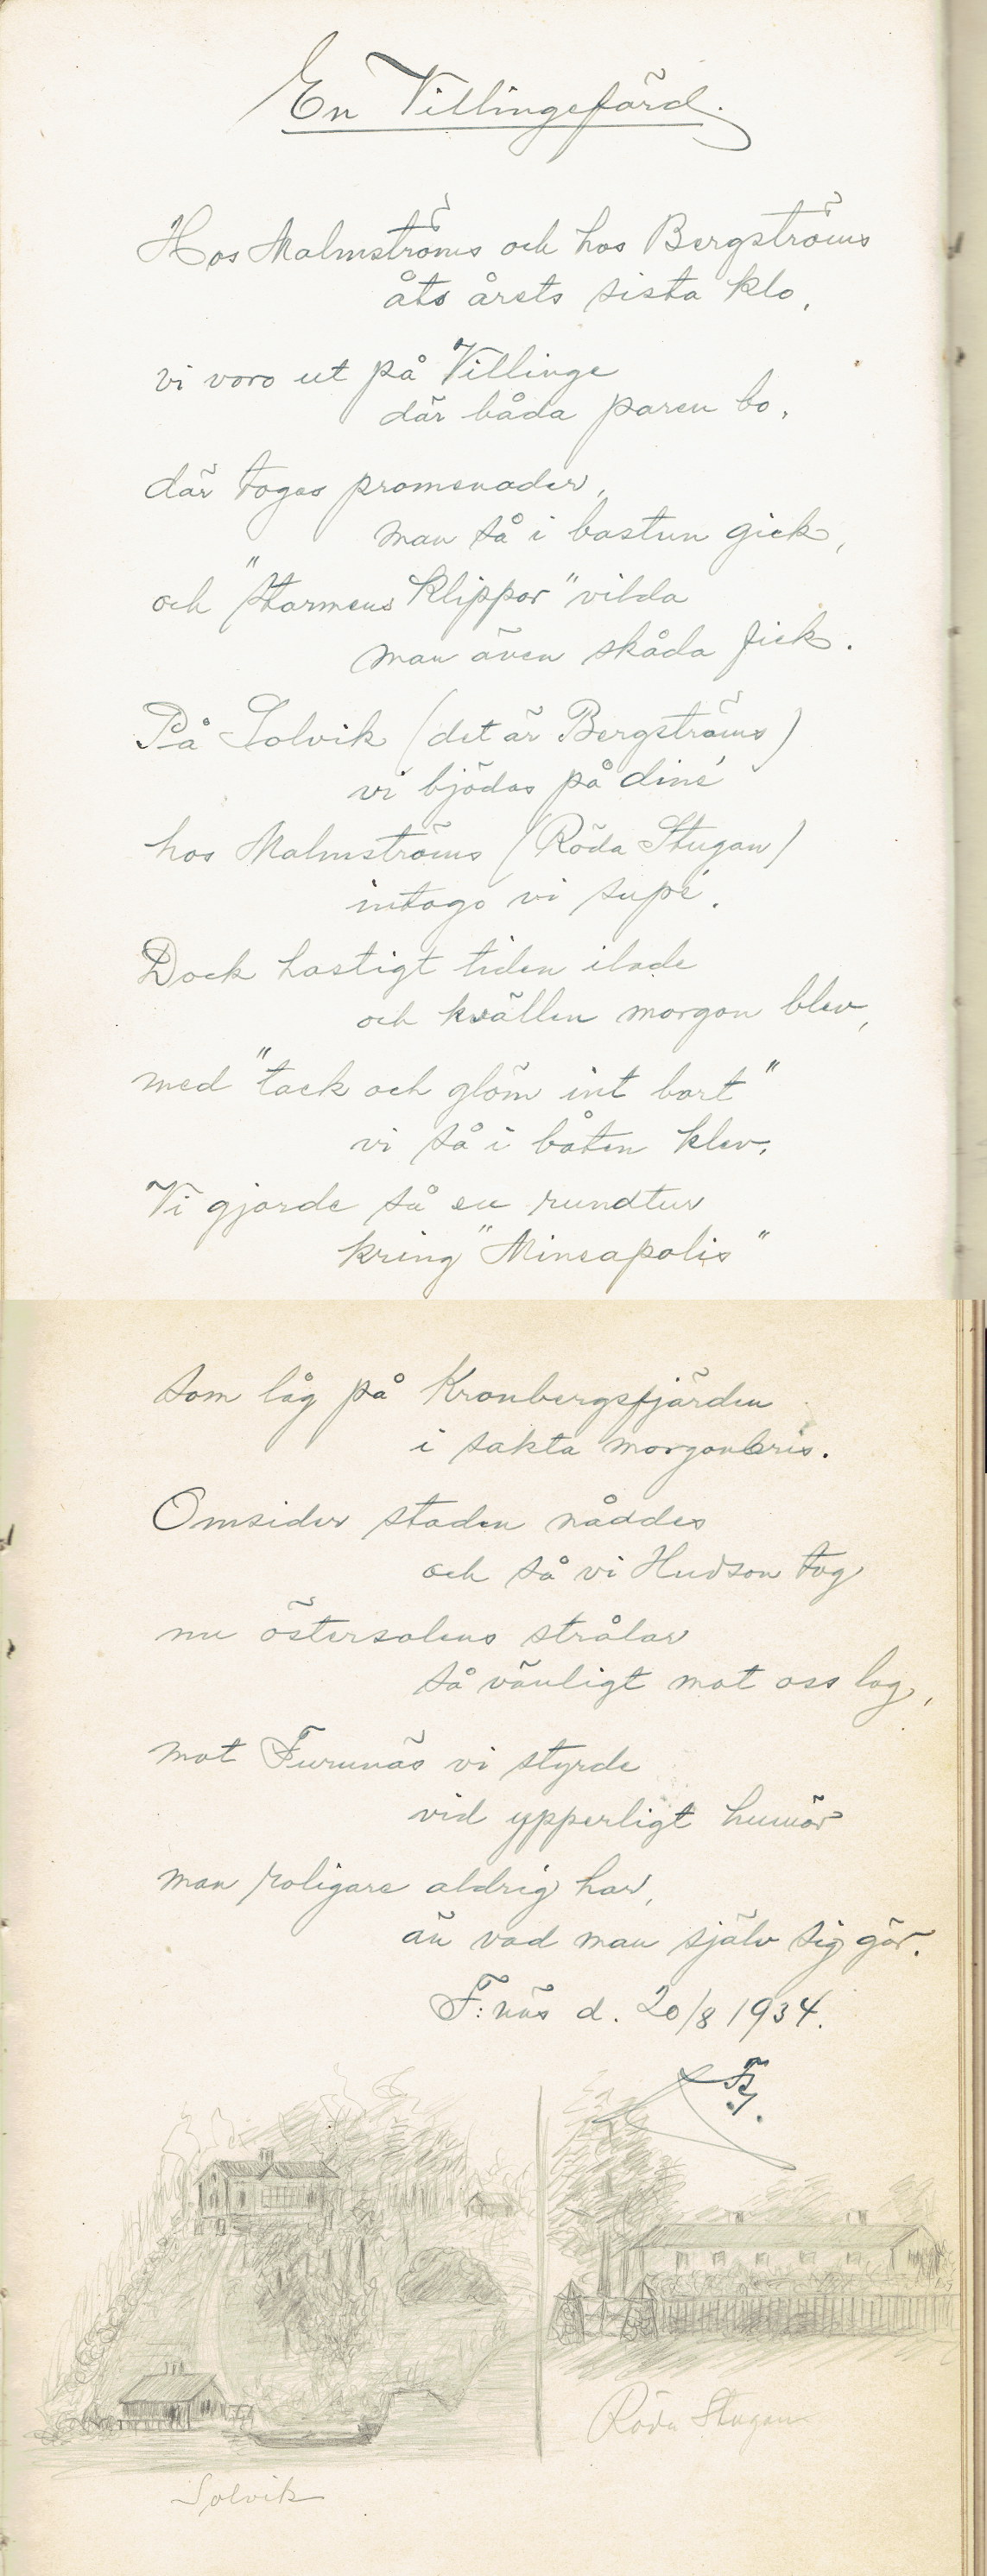 En Villingefärd.
Hos Malmströms och hos Bergströms
åts årets sista klo,
vi voro ut på Villinge
där båda paren bo,
där togos promenader,
man så i bastun gick,
och "Stormens Klippor" vilda
man även skåda fick.
På Solvik (det är Bergströms)
vi bjödos på diné
hos Malmströms (Röda Stugan)
intogo vi supé.
Dock hastigt tiden ilade
och kvällen morgon blev,
med "tack och glöm int bort"
vi så i båten klev.
Vi gjorde så en rundtur
kring "Mineapolis"
som låg på Kronbergsfjärden
i sakta morgonbris.
Omsider staden nåddes
och så vi Hudson tog
nu östersolens strålar
så vänligt mot oss log,
mot Furunäs vi styrde
vid ypperligt humör
man roligare aldrig har,
än vad man själv sig gör.
F:näs d. 20/8 1934.
Solvik
Röda Stugan